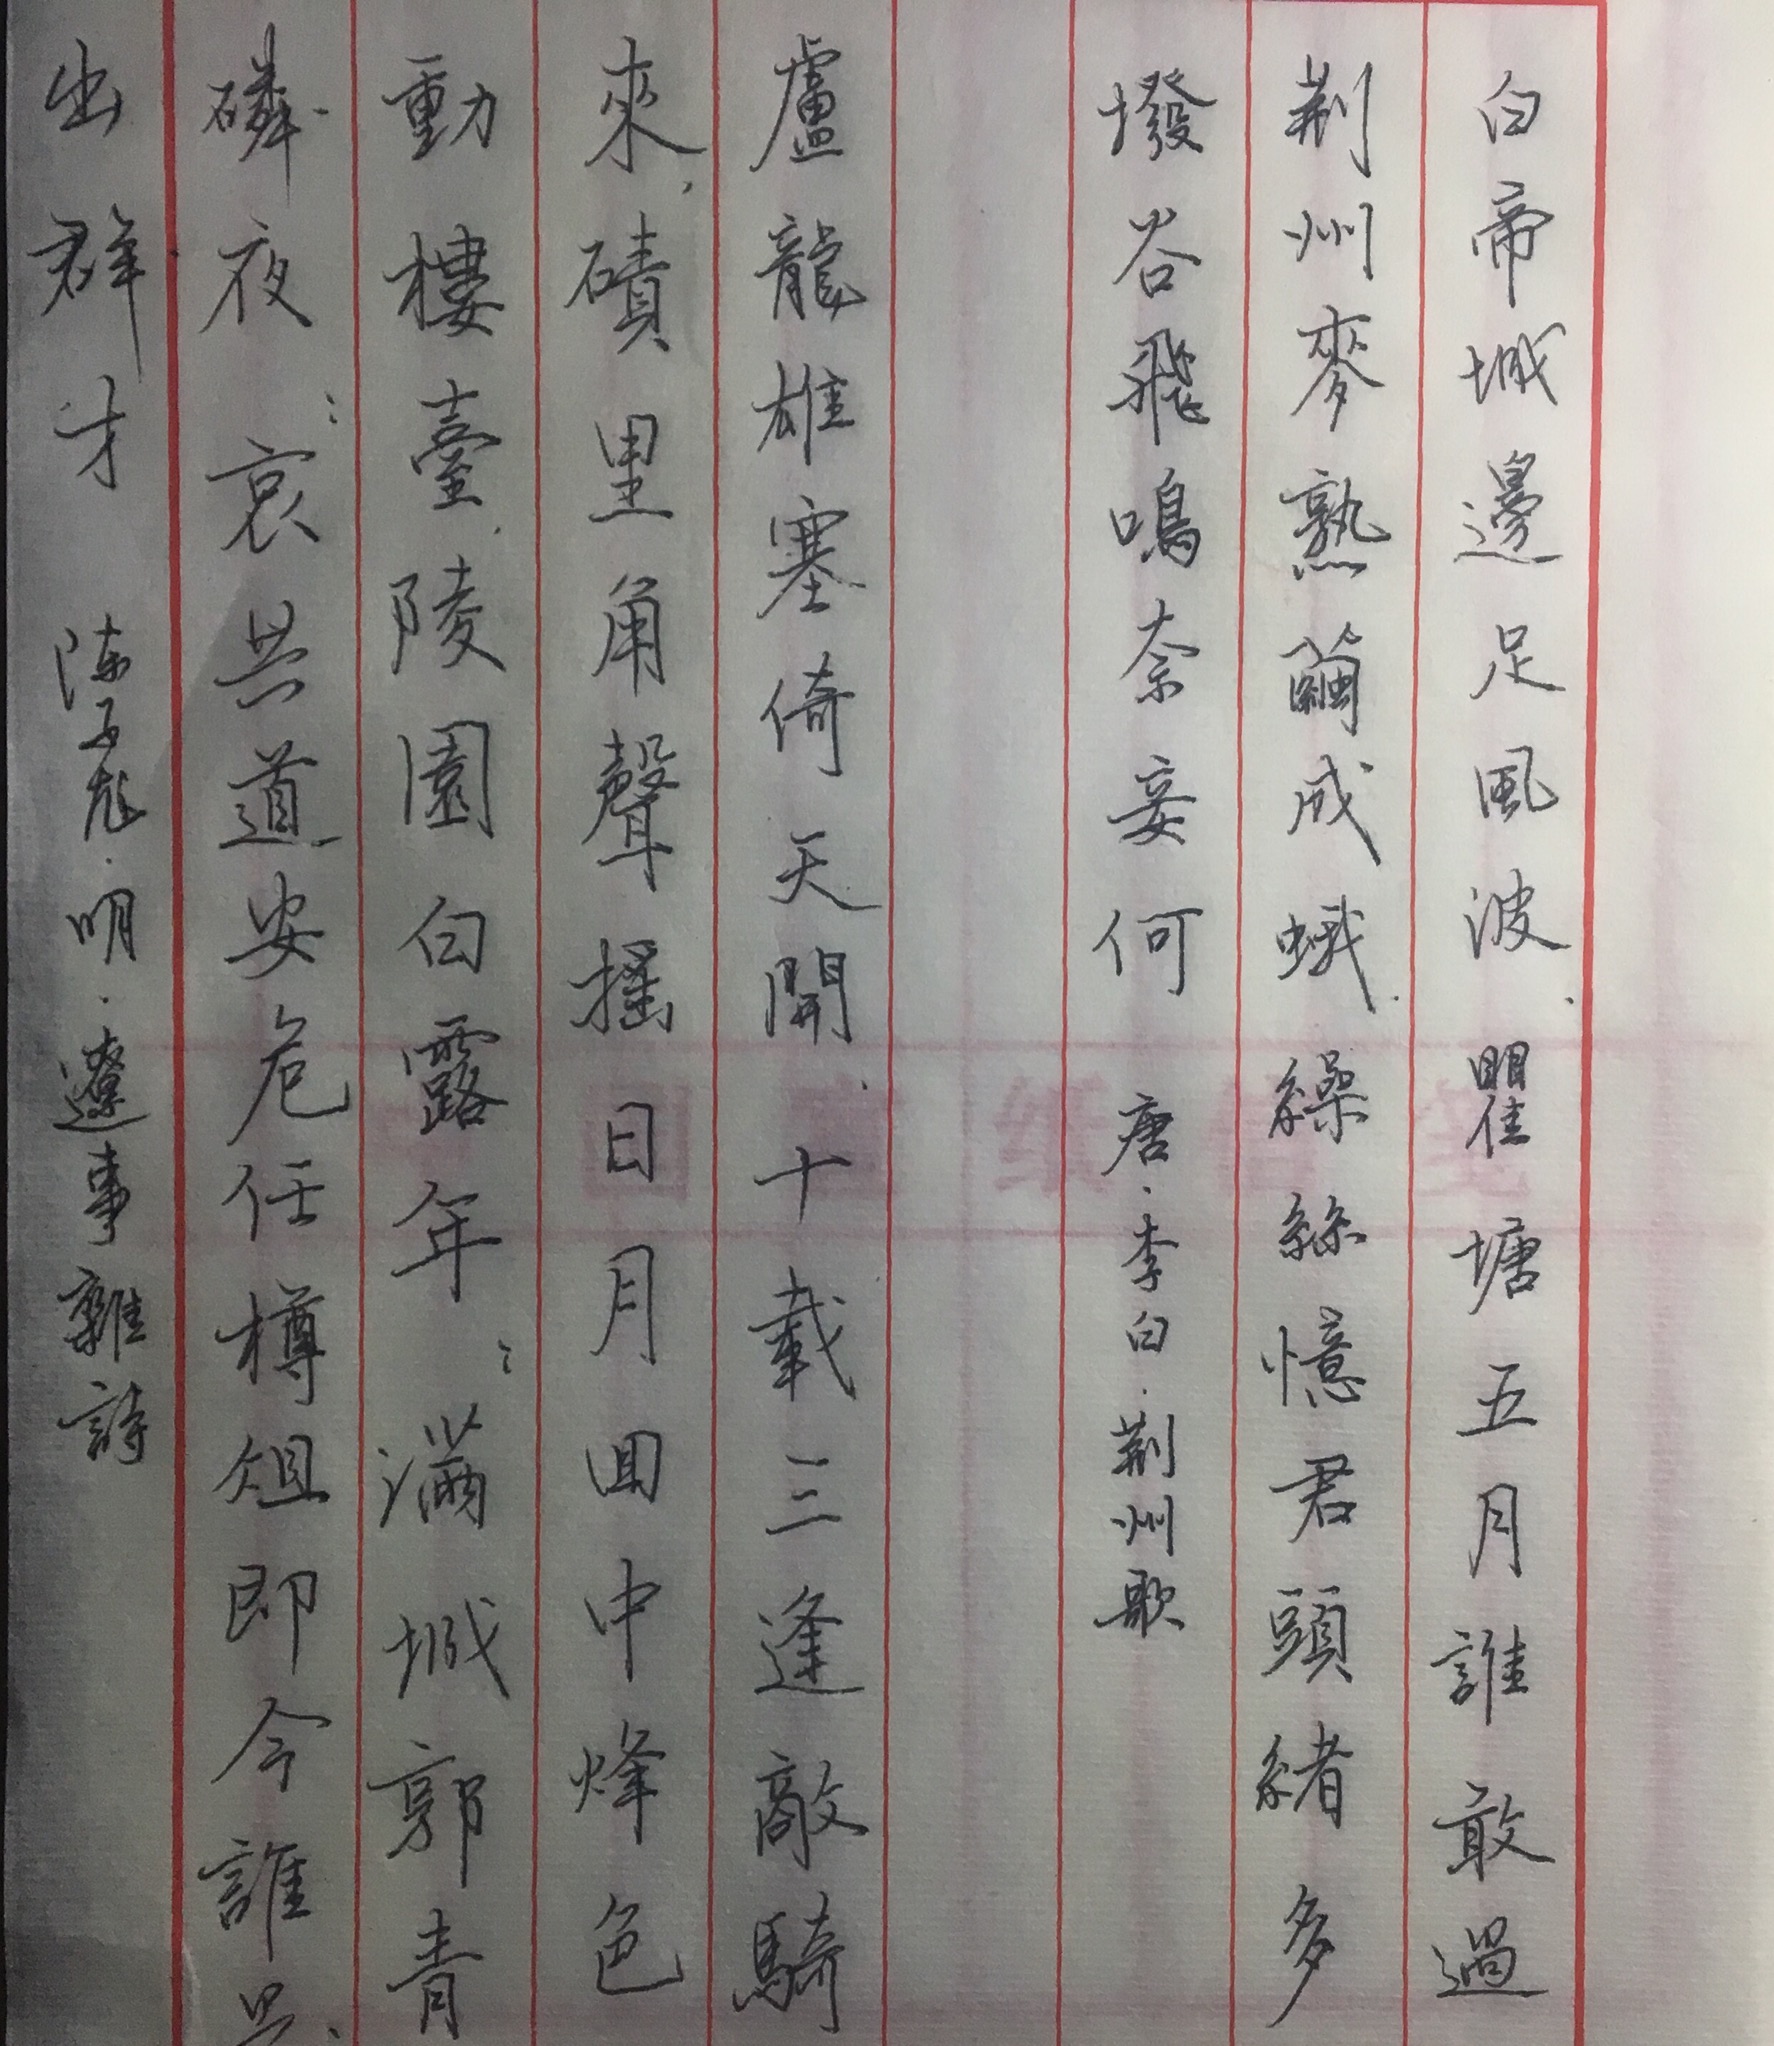 白帝城邊足風波瞿塘五月誰敢過
荆州麥熟繭成蛾繰絲憶君頭緒多
撥谷飛鳴奈妾何 唐·李白·荆州歌
盧龍雄塞倚天開十載三逢敵騎
來磧里角聲搖日月回中烽色
動樓臺陵園白露年〻滿城郭青
磷夜〻哀共道安危任樽俎即今誰是
出群才 陳子龍·明·遼事雜詩